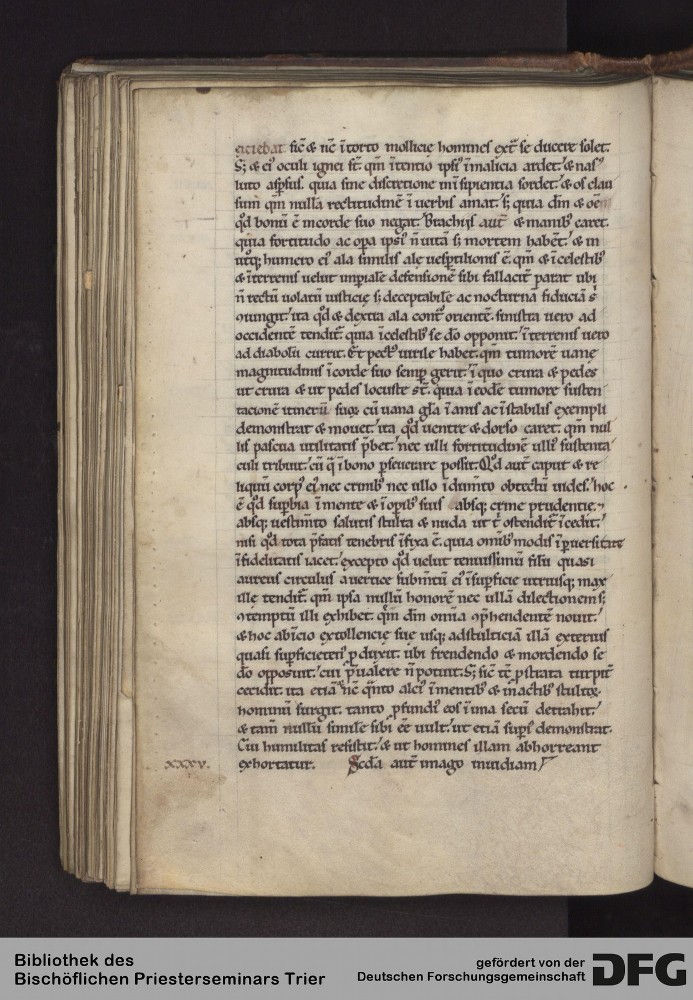 giciebat. sic̄ & nc̄ ītorto mollicię homines ext̄ se ducere solet.
S; & ei᾽ oculi ignei st̄. qm̄ ītentio ipsi᾽ īmalicia ardet. & nas᾽
luto asp̄sus. quia sine discretione īni sipientia sordet. & os clau
sum qm̄ nullā rectitudinē ī uerbis amat. s; quia dm̄ & oē
qd̄ bonū ē incorde suo negat. Brachijs aut̄ & manib᾽ caret.
quia fortitudo ac opa ipsi᾽ n̄ uitā s; mortem habēt. & in
utq; humero ei᾽ ala similis alę uesp̄tilionis ē. qm̄ & ī celestib᾽
& ī terrenis uelut impiale defensionē sibi fallacit̄ parat ubi
n̄ rectū uolatū iusticię s; deceptabilē ac nocturnā fiduciā s᾽
9iungit. ita qd̄ & dextra ala cont᾽ orientē. sinistra uero ad
occidentē tendit᾽. quia ī celestib᾽ se do᾽ opponit. ī terrenis uero
ad diabolū currit. Et pect᾽ uirile habet. qm̄ tumorē uanę
magnitudinis ī corde suo semp̄ gerit. ī quo crura & pedes
ut crura & ut pedes locustę st̄. quia ī eodē tumore susten
tacionē itinerū suoꝝ cū uana gl̄a ī anis ac ī stabilis exempli
demonstrat & mouet. ita qd̄ uentre & dorso caret. qm̄ nul
lis pascua utilitatis p̄bet. nec ulli fortitudinē ulli᾽ sustenta
culi tribuit. cū q̄ ī bono pseuerare possit. Qd̄ aut̄ caput & re
liquū corp᾽ ei᾽ nec crinib᾽ nec ullo īdum̄to obtectū uides. hoc
ē qd̄ supbia ī mente & ī opib᾽ suis absq; crine prudentię ⁊
absq; uestim̄to salutis stulta & nuda ut t᾽ ostendit᾽ īcedit.
nisi qd̄ tota p̄fatis tenebris īfixa ē. quia omib᾽ modis īpuersitate
īfidelitatis iacet. excepto qd̄ uelut tenuissimū filū quasi
aureus circulus a uertice subm̄tū ei᾽ īsupficie utriusq; max
illę tendit᾽. qm̄ ipsa nullū honorē nec ullā dilectionem s;
9temptū illi exhibet. qm̄ dm̄ omia 9p̄hendentē nouit.
& hoc abīcio extollencię suę usq; ad stulticiā illā exterius
quasi supficietenꝰ pduxit. ubi frendendo & mordendo se
do᾽ opposuit. cui p̄ualere n̄ potuit. S; sic̄ tc̄ pstrata turpit᾽
cecidit. ita etiā nc̄ q̄nto alci᾽ īmentib᾽ & inactib᾽ stultoꝝ
hominū surgit. tanto pfundi᾽ eos ī ima secū detrahit.
& tam̄ nullū similē sibi eē uult. ut etiā supꝰ demonstrat᾽.
Cui humilitas resistit. & ut homines illam abhorreant
exhortatur. Scd̄a aut̄ imago inuidiam
xxxv.
Bibliothek des
Bischöflichen Priesterseminars Trier
gefördert von der
Deutschen Forschungsgemeinschaft
DFG